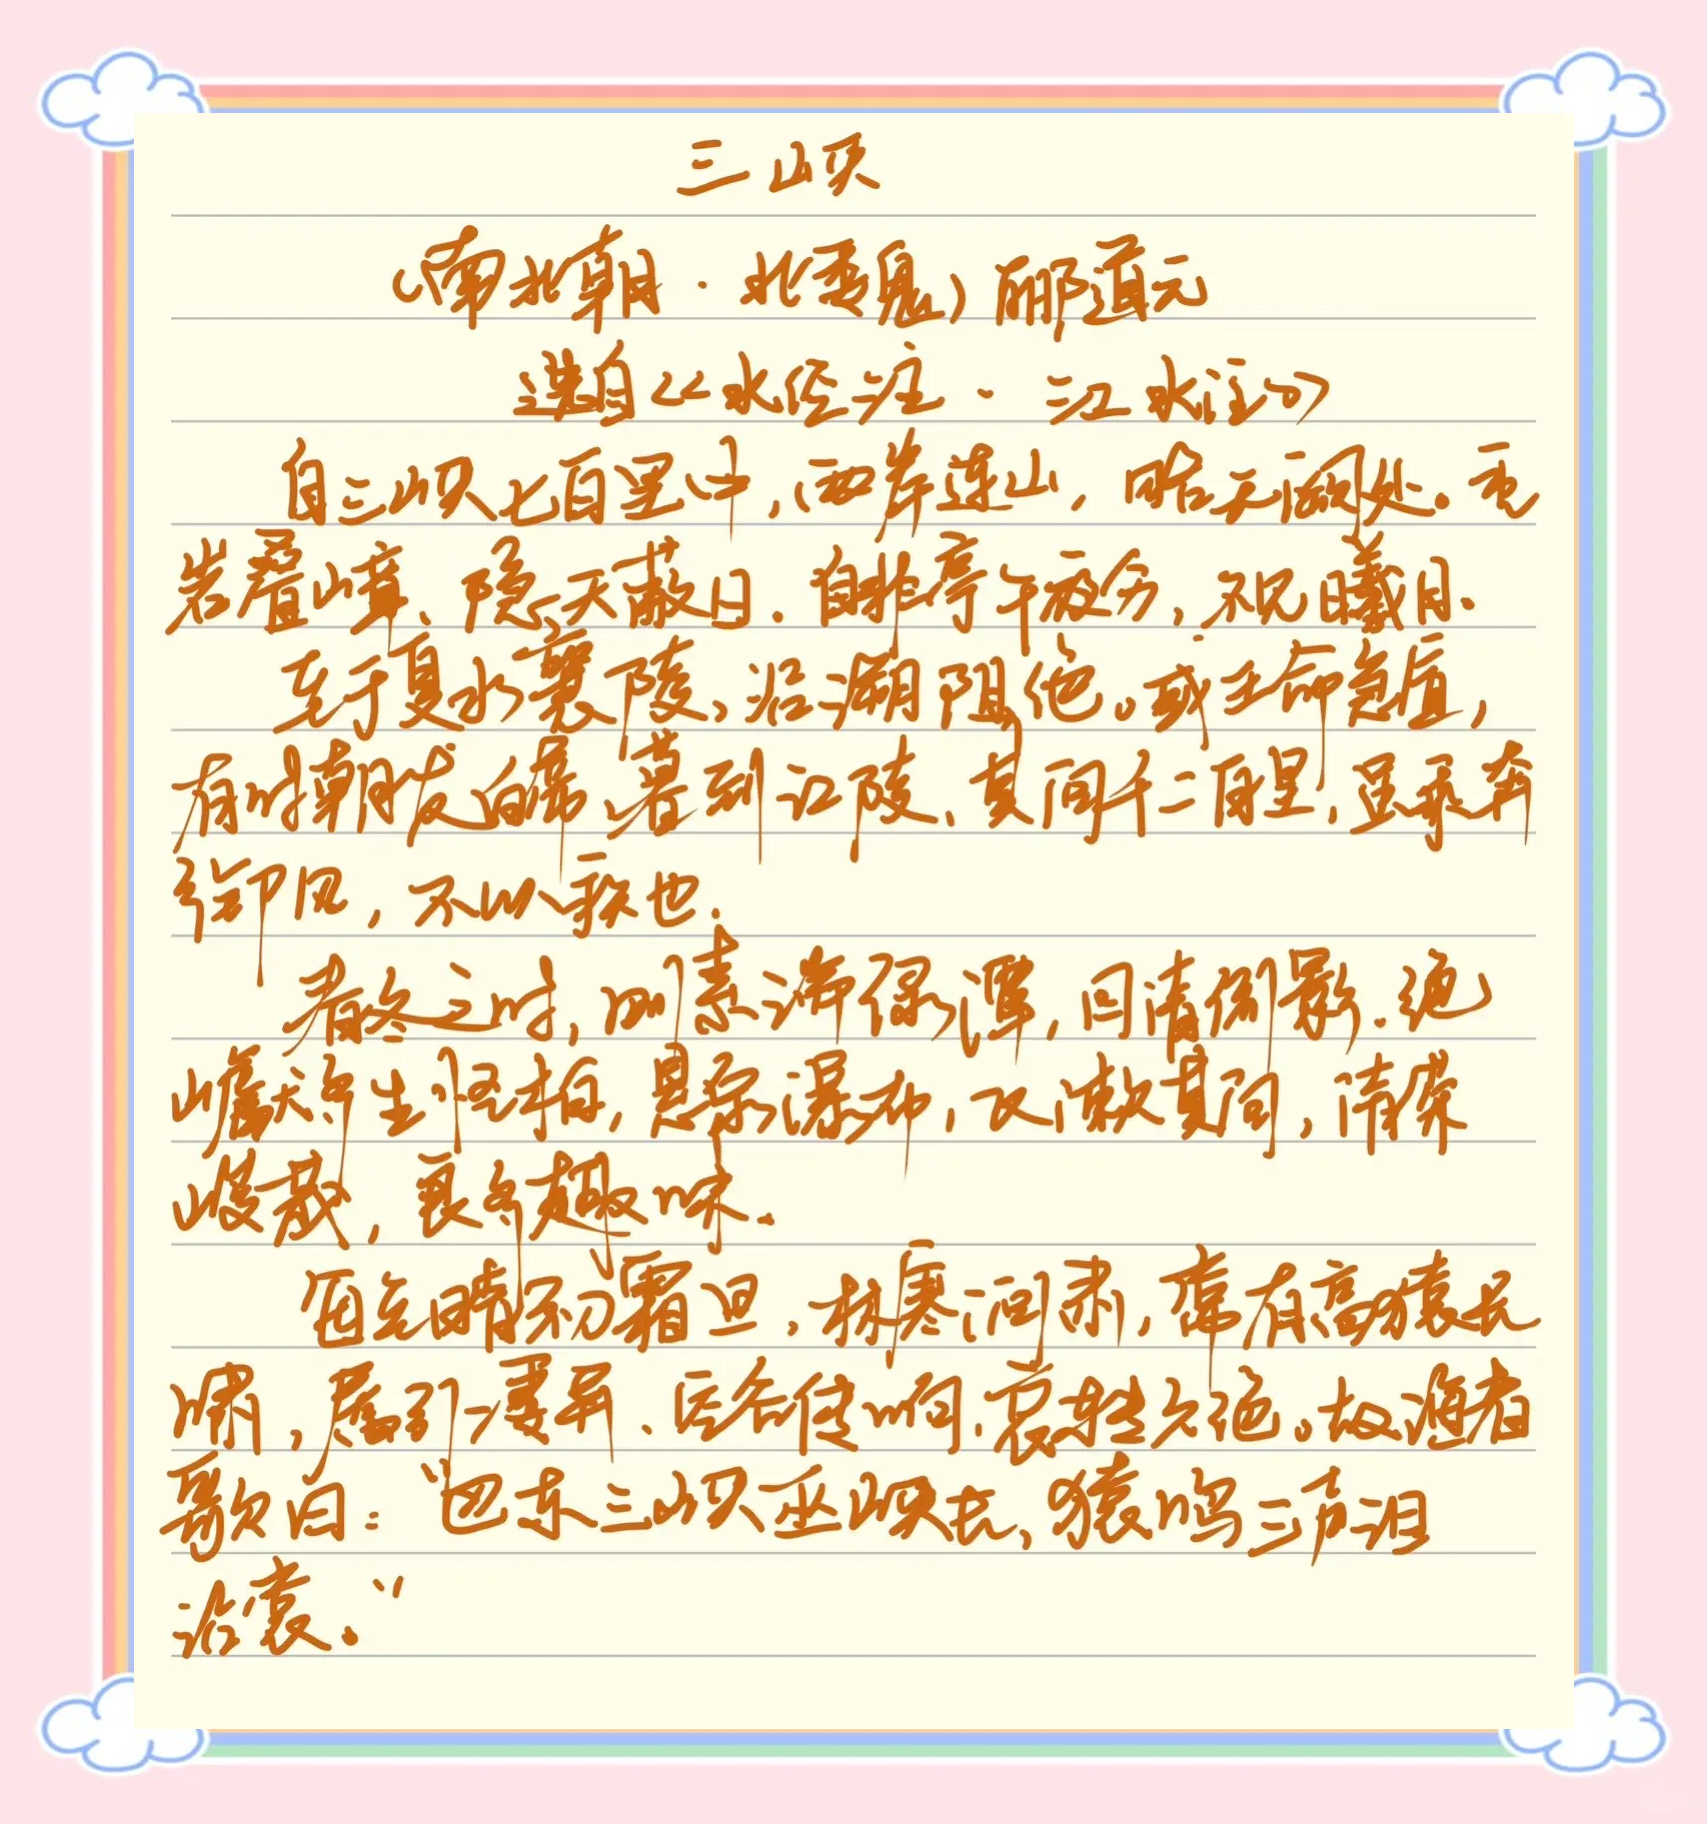 三峡
（南北朝·北魏）郦道元
选自《水经注·江水注》
自三峡七百里中，两岸连山，略无阙处。重
岩叠嶂，隐天蔽日。自非亭午夜分，不见曦月。
至于夏水襄陵，沿溯阻绝。或王命急宣，
有时朝发白帝，暮到江陵，其间千二百里，虽乘奔
御风，不以疾也。
春冬之时，则素湍绿潭，回清倒影。绝
巘多生怪柏，悬泉瀑布，飞漱其间，清荣
峻茂，良多趣味。
每至晴初霜旦，林寒涧肃，常有高猿长
啸，属引凄异，空谷传响，哀转久绝。故渔者
歌曰：“巴东三峡巫峡长，猿鸣三声泪
沾裳。”